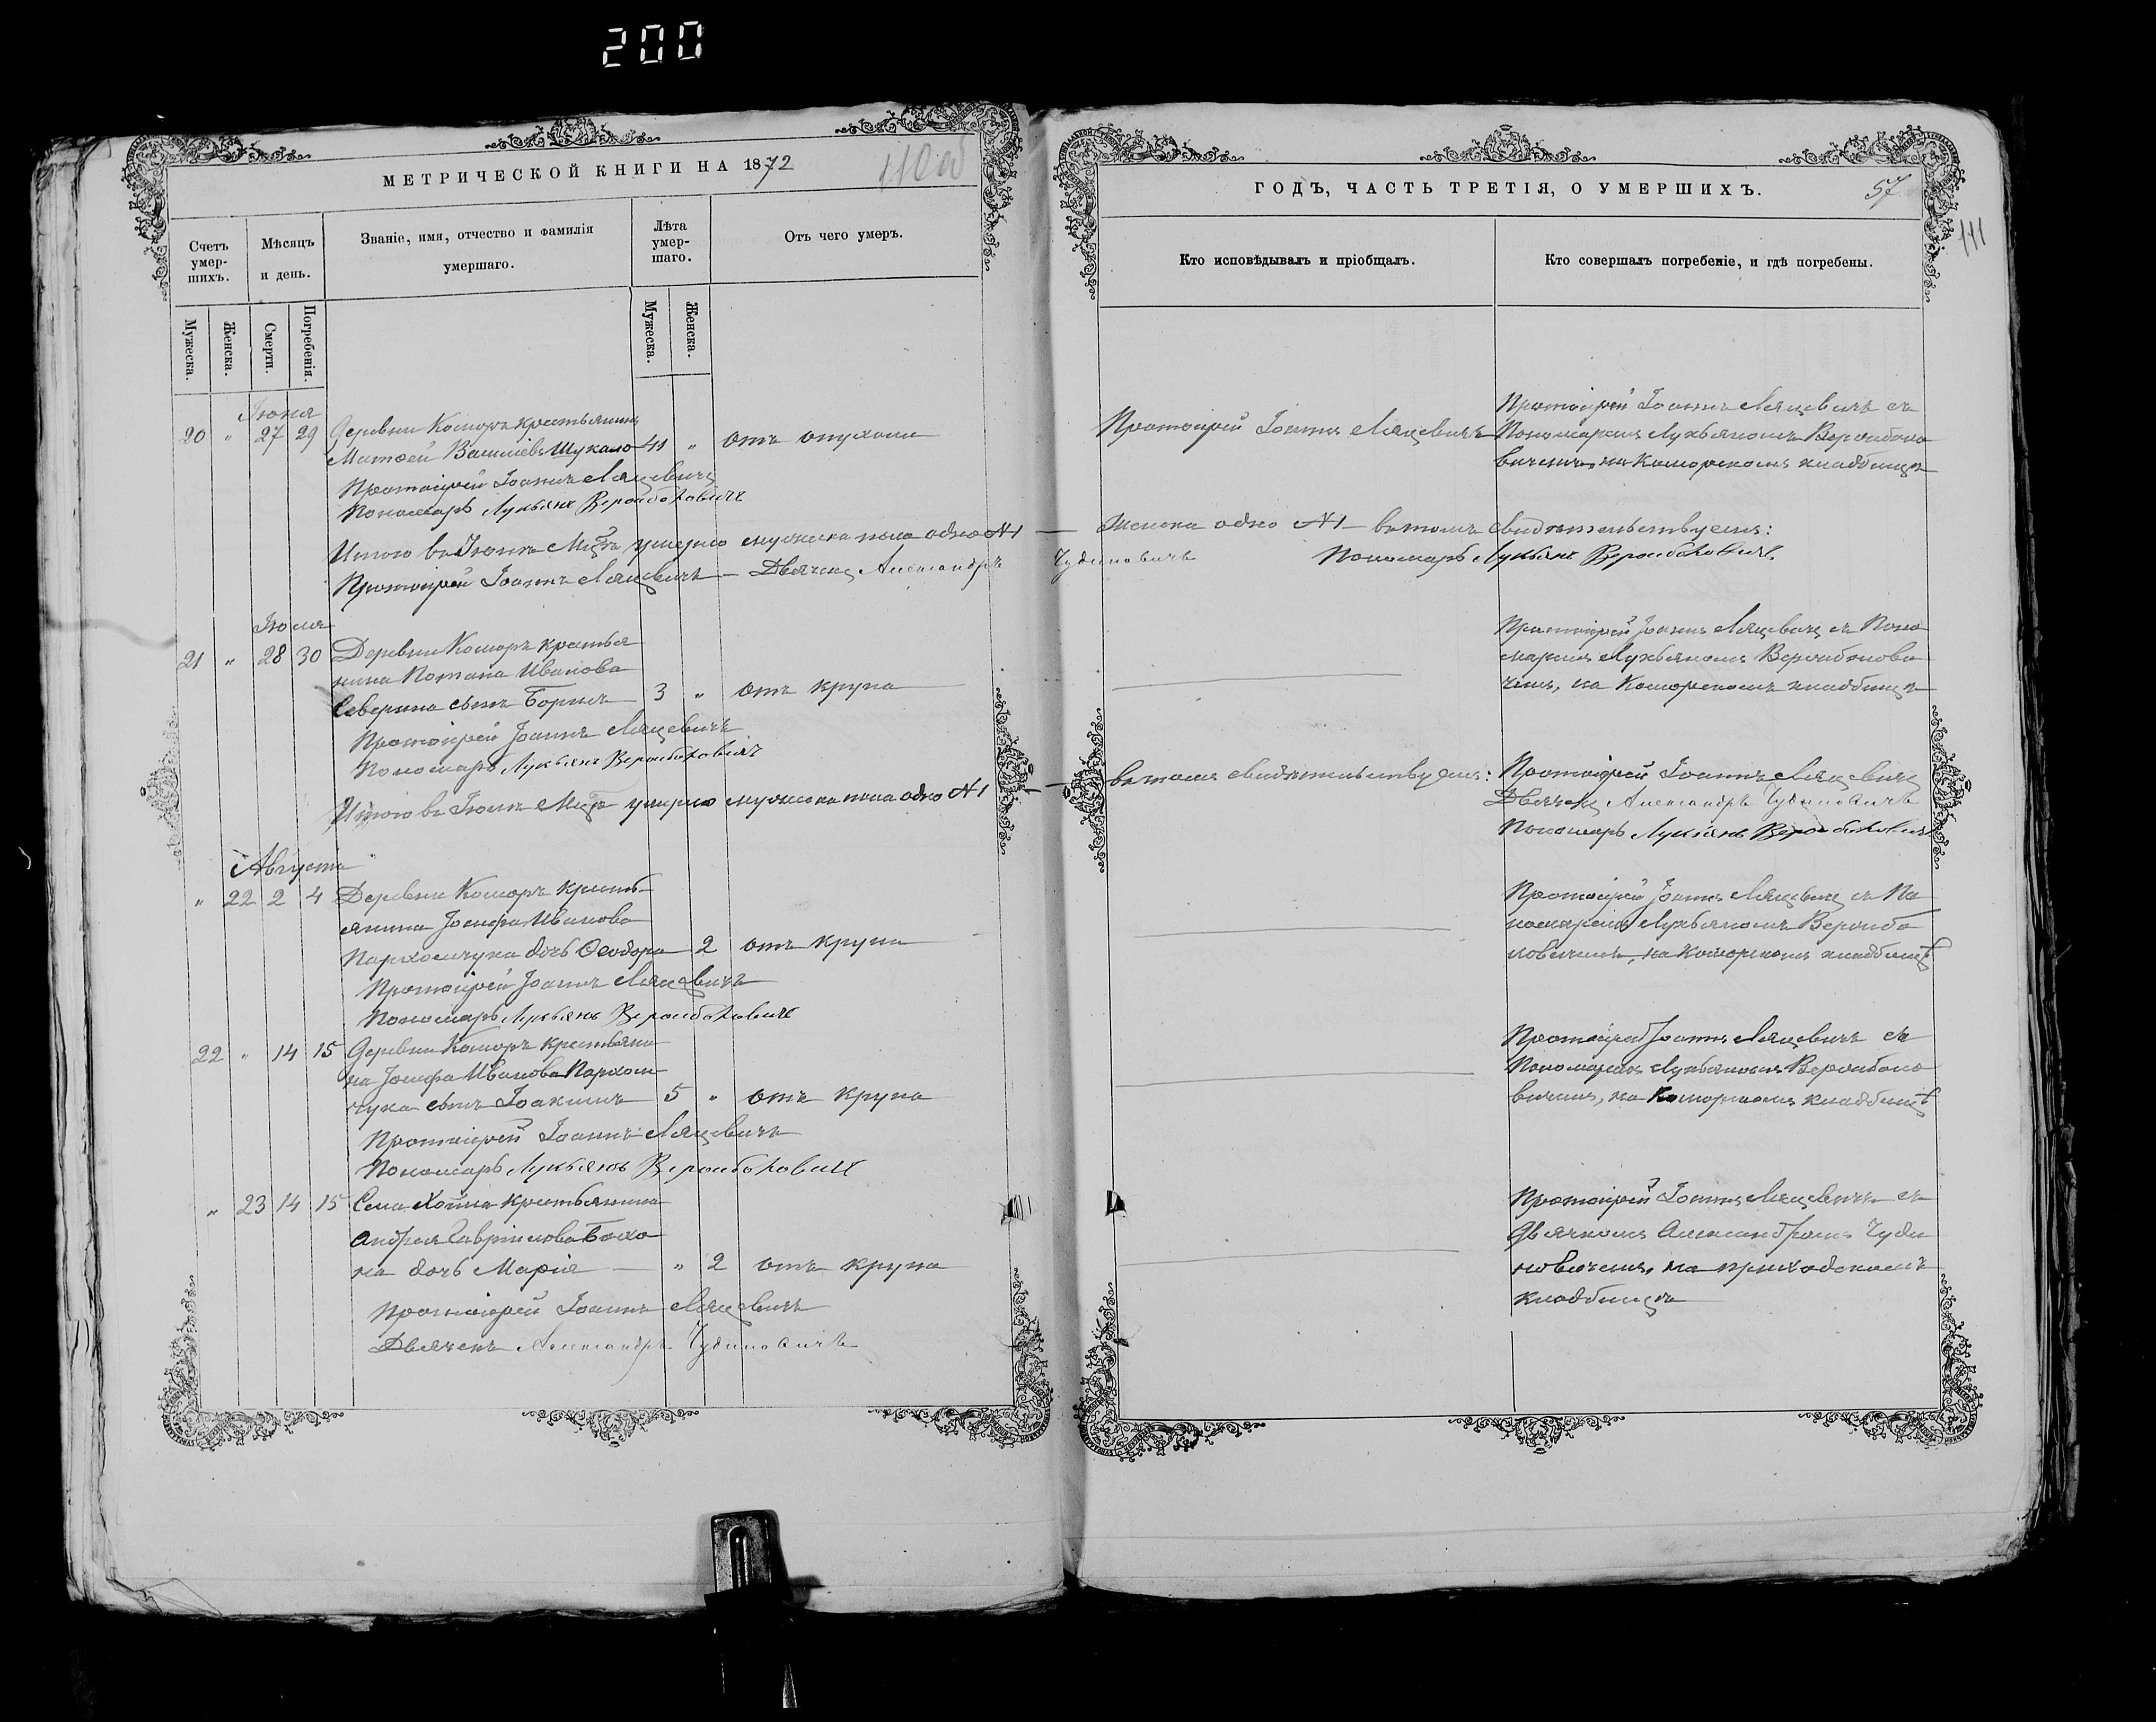 200
МЕТРИЧЕСКОЙ КНИГИ НА 1872
110 об
Счетъ умер-шихъ.
Мѣсяцъ и день.
Званіе, имя, отчество и фамилія
умершаго.
Лѣта умер-шаго.
Отъ чего умеръ.
Мужеска.
Женска.
Смерти.
Погребенія.
Мужеска.
Женска.
Іюня
20 " 27 29 Деревни Коморъ крестьянинъ
Матѳей Васильевъ Шукало 41 " отъ опухоли
Протоіерей Іоаннъ Ляцевичъ
Пономарь Лукьянъ
Итого въ Іюнѣ М-цѣ умерло мужеска пола одно №1
Протоіерей Іоаннъ Ляцевичъ — Дьячекъ Александръ
Іюля
21 " 28 30 Деревни Коморъ крестья
нина Потапа Иванова
Северина сынъ Борисъ 3 " отъ крупа
Протоіерей Іоаннъ Ляцевичъ
Пономарь Лукьянъ
Итого въ Іюлѣ М-цѣ умерло мужеска пола одно №1
Августа
" 22 2 4 Деревни Коморъ кресть
янина Іосифа Иванова
Пархомчука дочь Ѳеодора 2 отъ крупа
Протоіерей Іоаннъ Ляцевичъ
Пономарь Лукьянъ
22 " 14 15 Деревни Коморъ крестьяни
на Іосифа Иванова Пархом
чука сынъ Іоакимъ 5 " отъ крупа
Протоіерей Іоаннъ Ляцевичъ
Пономарь Лукьянъ
" 23 14 15 Села крестьянина
Андрея Гавріилова
на дочь Марія — " 2 отъ крупа
Протоіерей Іоаннъ Ляцевичъ
Дьячекъ Александръ Чудиновичъ
ГОДЪ, ЧАСТЬ ТРЕТІЯ, О УМЕРШИХЪ.
57
111
Кто исповѣдывалъ и пріобщалъ.
Кто совершалъ погребеніе, и гдѣ погребены.
Протоіерей Іоаннъ Ляцевичъ
Протоіерей Іоаннъ Ляцевичъ съ
Пономаремъ Лукьяномъ
на Коморскомъ кладбищѣ
Женска одно №1 — въ томъ свидѣтельствуемъ:
Чудиновичъ Пономарь Лукьянъ
Протоіерей Іоаннъ Ляцевичъ съ Поно
маремъ Лукьяномъ
на Коморскомъ кладбищѣ
въ томъ свидѣтельствуемъ: Протоіерей Іоаннъ Ляцевичъ
Дьячекъ Александръ Чудиновичъ
Пономарь Лукьянъ
Протоіерей Іоаннъ Ляцевичъ съ По
номаремъ Лукьяномъ
на Коморскомъ кладбищѣ
Протоіерей Іоаннъ Ляцевичъ съ
Пономаремъ Лукьяномъ
на Коморскомъ кладбищѣ
Протоіерей Іоаннъ Ляцевичъ съ
Дьячкомъ Александромъ Чуди
новичемъ, на приходскомъ
кладбищѣ